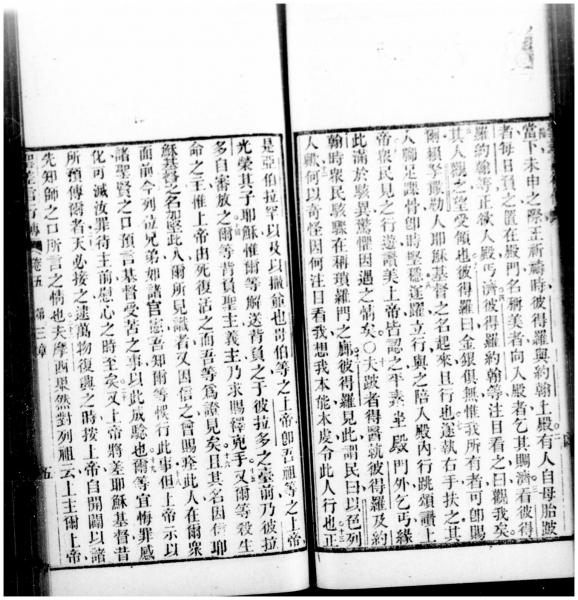 當下未申之際王祈禱時彼得羅與約翰上殿有人自母胎跛
者每日負之置在殿門名稱美者向入殿者乞其賙濟看彼得
羅約翰等正欲入殿丐濟彼得羅約翰等注目看之曰觀我矣
其人觀之望受領也彼得羅曰金銀俱無惟我所有者可即賜
爾賴拏勒人耶穌基督之名起來且行也遂執右手扶之其
人腳足踝骨卽時堅穩躍立行與之陪入殿內行跳頌讚上
帝衆民見之行遊讚美上帝皆認之平素坐殿門外乞丐緣
此滿於駭異驚懼因遇之情矣〇夫跛者得醫就彼得羅及約
翰時衆民駭驟在稱瑣羅門之廊彼得羅見此謂民曰以色列
人歟何以奇怪因何注目看我想我本能本虔令此人行也正
是亞伯拉罕以及以撒爺也哥伯等之上帝卽吾祖等之上帝
光榮其子耶穌惟爾等解送背負之于彼拉多之臺前乃彼拉
多自審放之爾等背負聖主義主乃求賜釋兇手又爾等殺生
命之王惟上帝出死復活之而吾等爲證見矣且其名因信耶
穌基督之名加堅此人爾所見識者又因信之曾賜痊此人在爾衆
面前今列位兄弟如諸官憲吾知爾等悞行此事但上帝示以
諸聖賢之口預言基督受苦之事以此成驗也爾等宜悔罪感
化可滅汝罪待主前慰心之時至矣又上帝將差耶穌基督昔
所預傳爾者天必接之逮萬物復興之時按上帝自開闢以諸
先知師之口所言之情也夫摩西果然對列祖云上主爾上帝
卷五 第三章 五